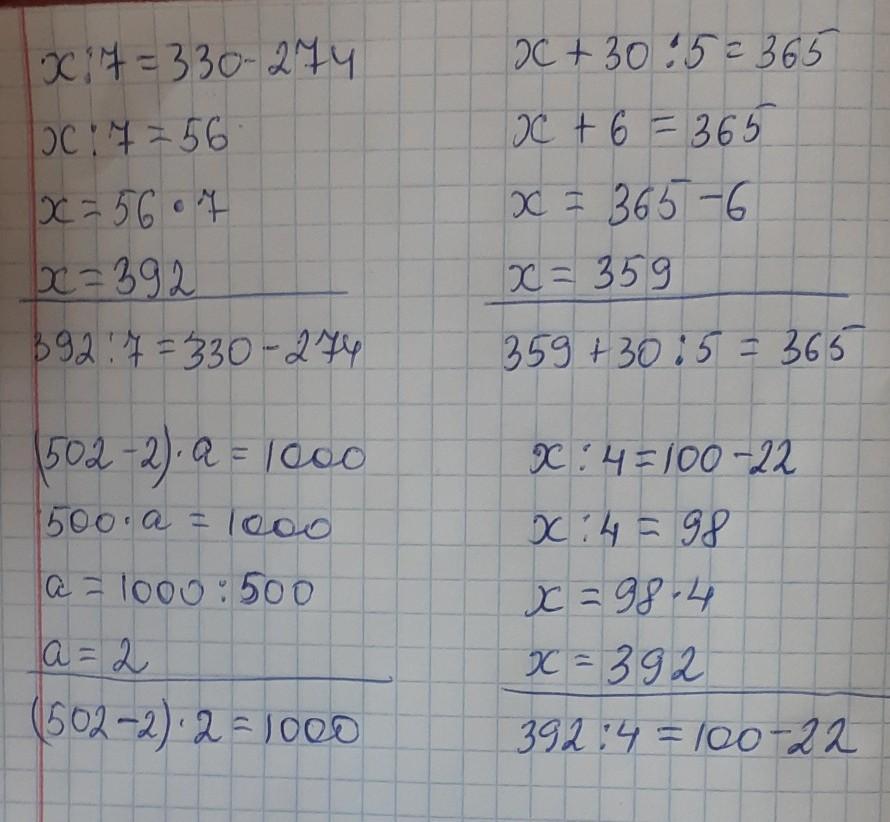 x:7=330-274
x:7=56
x=56·7
x=392
392:7=330-274
x+30:5=365
x+6=365
x=365-6
x=359
359+30:5=365
(502-2)·a=1000
500·a=1000
a=1000:500
a=2
(502-2)·2=1000
x:4=100-22
x:4=98
x=98·4
x=392
392:4=100-22